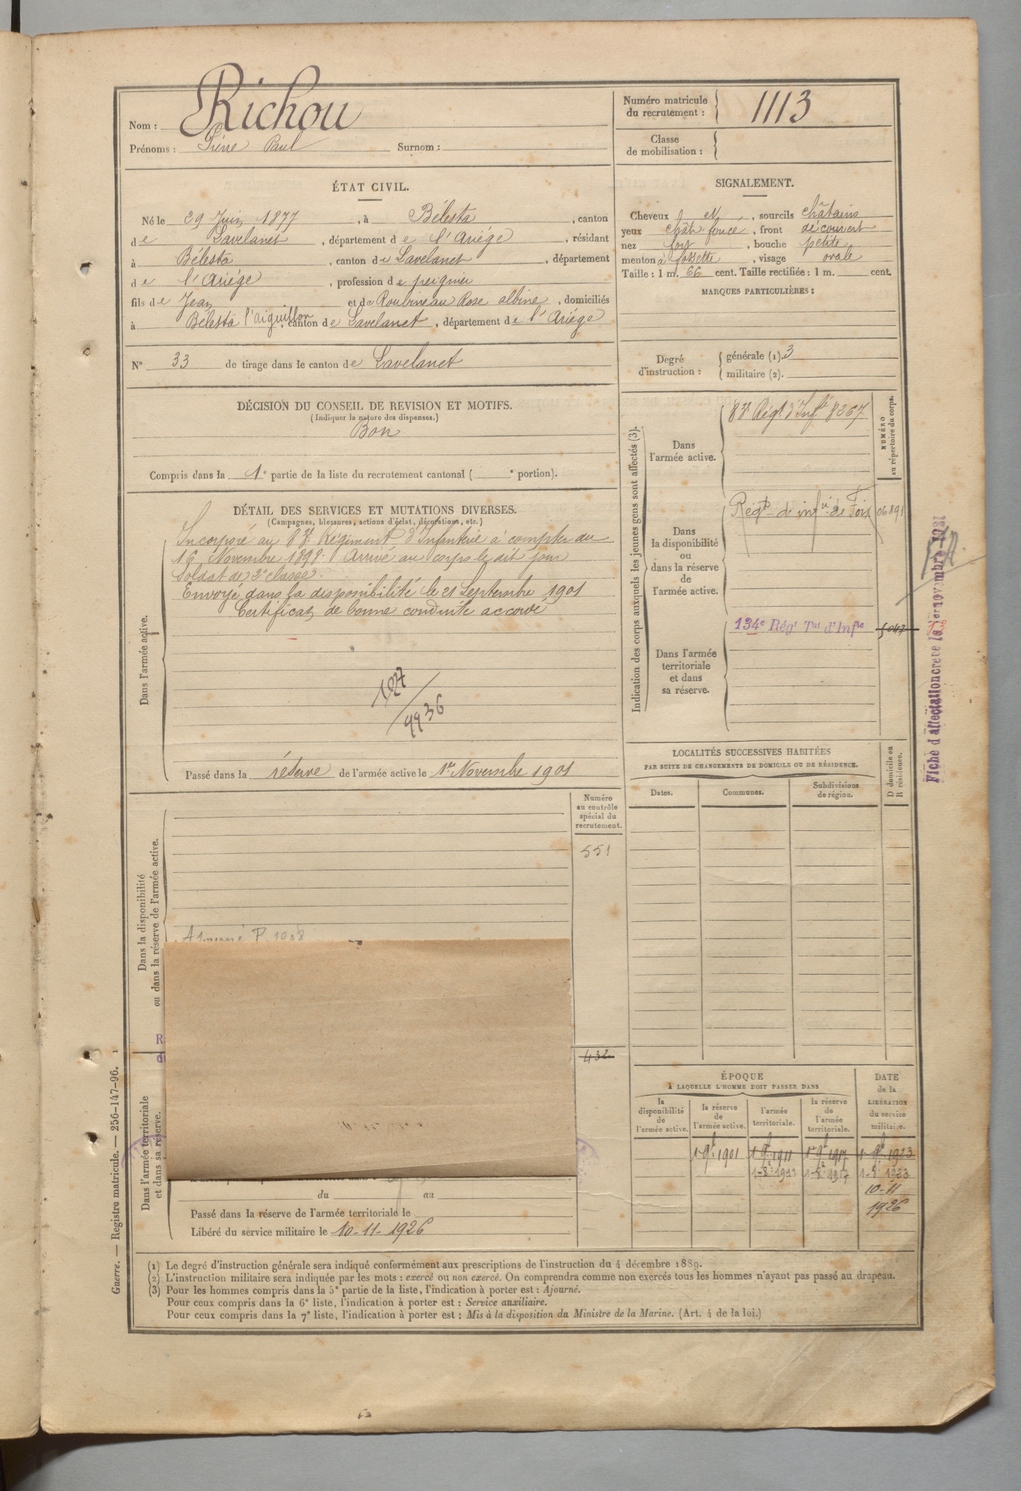 Nom : Richou
Prénoms : Pierre Paul Surnom :
Numéro matricule du recrutement : 1113
Classe de mobilisation :
ÉTAT CIVIL.
Né le 29 Juin 1877, à Bélesta, canton
de Lavelanet, département de l'Ariège, résidant
à Bélesta, canton de Lavelanet, département
de l'Ariège, profession de peignier
fils de Jean et de Roubineau Rose albine, domiciliés
à Bélesta l'aiguillon, canton de Lavelanet, département de l'Ariége
N° 33 de tirage dans le canton de Lavelanet
SIGNALEMENT.
Cheveux et, sourcils châtains
yeux chât foncé, front découvert
nez fort, bouche petite
menton à fossette, visage ovale
Taille : 1 m. 66 cent. Taille rectifiée : 1 m. cent.
MARQUES PARTICULIÈRES :
Degré d'instruction : générale (1). 3
militaire (2).
DÉCISION DU CONSEIL DE REVISION ET MOTIFS.
(Indiquer la nature des dispenses.)
Bon
Compris dans la 1e partie de la liste du recrutement cantonal ( e portion).
DÉTAIL DES SERVICES ET MUTATIONS DIVERSES.
(Campagnes, blessures, actions d'éclat, décorations, etc.)
Dans l'armée active.
Incorporé au 83e Régiment d'Infanterie à compter du
16 Novembre 1898. Arrivé au corps le dit jour
Soldat de 2e classe.
Envoyé dans la disponibilité le 21 Septembre 1901
Certificat de bonne conduite accordé
9936
Passé dans la réserve de l'armée active le 1er Novembre 1901
Indication des corps auxquels les jeunes gens sont affectés (3).
NUMÉRO au répertoire du corps.
Dans l'armée active.
83e Régt d'Infie 8367
Dans la disponibilité ou dans la réserve de l'armée active.
Régt d'infie de Foix 06891
Dans l'armée territoriale et dans sa réserve.
134e Régt Tal d'Infie
LOCALITÉS SUCCESSIVES HABITÉES
PAR SUITE DE CHANGEMENTS DE DOMICILE OU DE RÉSIDENCE.
Dates. Communes. Subdivisions de région. D domicile ou R résidence.
Numéro au contrôle spécial du recrutement.
551
432
Dans la disponibilité ou dans la réserve de l'armée active.
Dans l'armée territoriale et dans sa réserve.
du au
Passé dans la réserve de l'armée territoriale le
Libéré du service militaire le 10-11-1926
ÉPOQUE
À LAQUELLE L'HOMME DOIT PASSER DANS
DATE de la LIBÉRATION du service militaire.
la disponibilité de l'armée active. la réserve de l'armée active. l'armée territoriale. la réserve de l'armée territoriale.
1 9e 1901 1 9e 1911 1 9e 1917 1 9e 1923
10-11
1926
(1) Le degré d'instruction générale sera indiqué conformément aux prescriptions de l'instruction du 4 décembre 1889.
(2) L'instruction militaire sera indiquée par les mots : exercé ou non exercé. On comprendra comme non exercés tous les hommes n'ayant pas passé au drapeau.
(3) Pour les hommes compris dans la 5e partie de la liste, l'indication à porter est : Ajourné.
Pour ceux compris dans la 6e liste, l'indication à porter est : Service auxiliaire.
Pour ceux compris dans la 7e liste, l'indication à porter est : Mis à la disposition du Ministre de la Marine. (Art. 4 de la loi.)
Guerre. — Registre matricule. — 256-147-96.